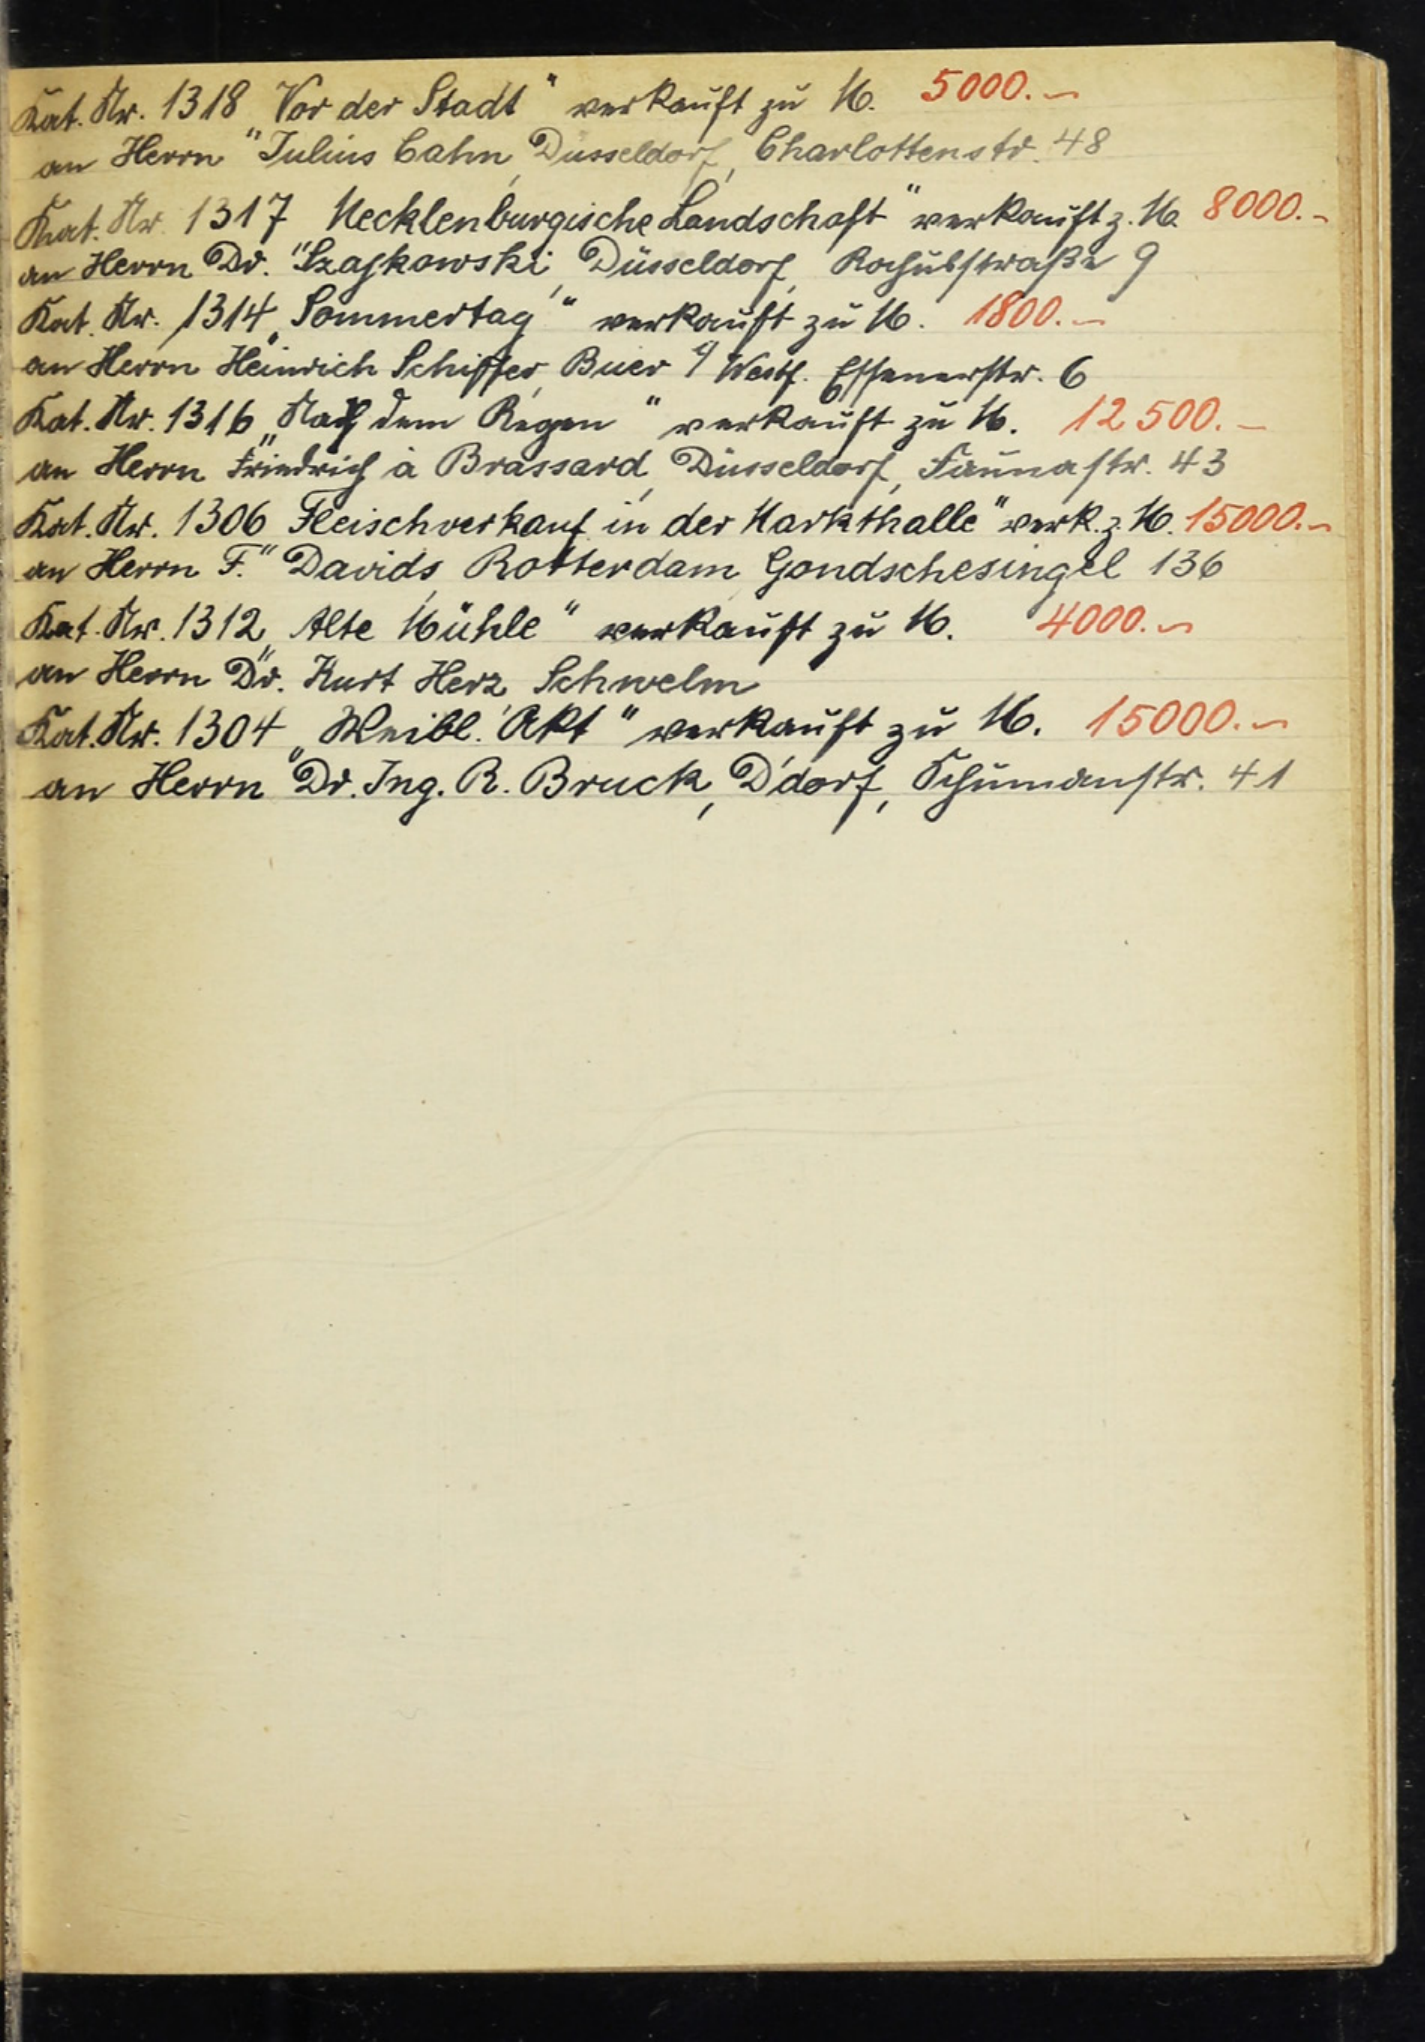 Kat. Nr. 1318 „Vor der Stadt" verkauft zu M. 5000.–
an Herrn Julius Cahn, Düsseldorf, Charlottenstr. 48
Kat. Nr. 1317 „Mecklenburgische Landschaft" verkauft z. M. 8000.–
an Herrn Dr. Szajkowski, Düsseldorf, Rochusstraße 9
Kat. Nr. 1314 „Sommertag" verkauft zu M. 1800.–
an Herrn Heinrich Schiffer, Buer i/ Westf. Essenerstr. 6
Kat. Nr. 1316 „Nach dem Regen" verkauft zu M. 12500.–
an Herrn Friedrich à Brassard, Düsseldorf, Faunastr. 43
Kat. Nr. 1306 „Fleischverkauf in der Markthalle" verk. z. M. 15000.–
an Herrn F. Davids, Rotterdam, Gondschesingel 136
Kat. Nr. 1312 „Alte Mühle" verkauft zu M. 4000.–
an Herrn Dr. Kurt Herz, Schwelm
Kat. Nr. 1304 „Weibl. Akt" verkauft zu M. 15000.–
an Herrn Dr. Ing. R. Bruck, D'dorf, Schumanstr. 41